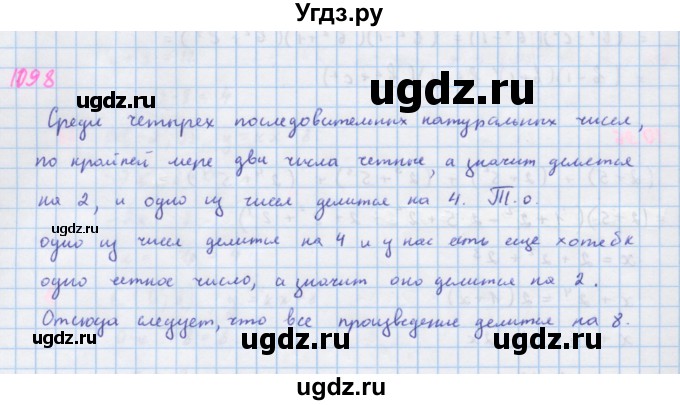 Угдз.ру
1098
Среди четырех последовательных натуральных чисел,
по крайней мере два числа четные, а значит делется
на 2, и одно из чисел делится на 4. Т.о.
одно из чисел делится на 4 и у нас есть еще хотебы
одно четное число, а значит оно делится на 2.
Отсюда следует, что все произведение делится на 8.
ugdz.ru
ugdz.ru
ugdz.ru
ugdz.ru
ugdz.ru
ugdz.ru
ugdz.ru
ugdz.ru
ugdz.ru
ugdz.ru